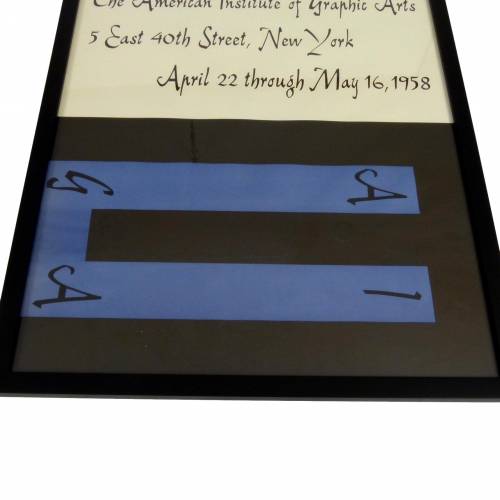 The American Institute of Graphic Arts
5 East 40th Street, New York
April 22 through May 16, 1958
G A
A I